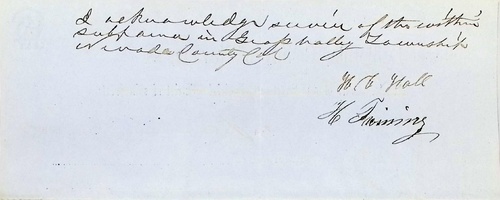 I acknowledge servic of the within
subpaena in Grass Valley Township
Nevada County Cal
H C Hall
H Twining